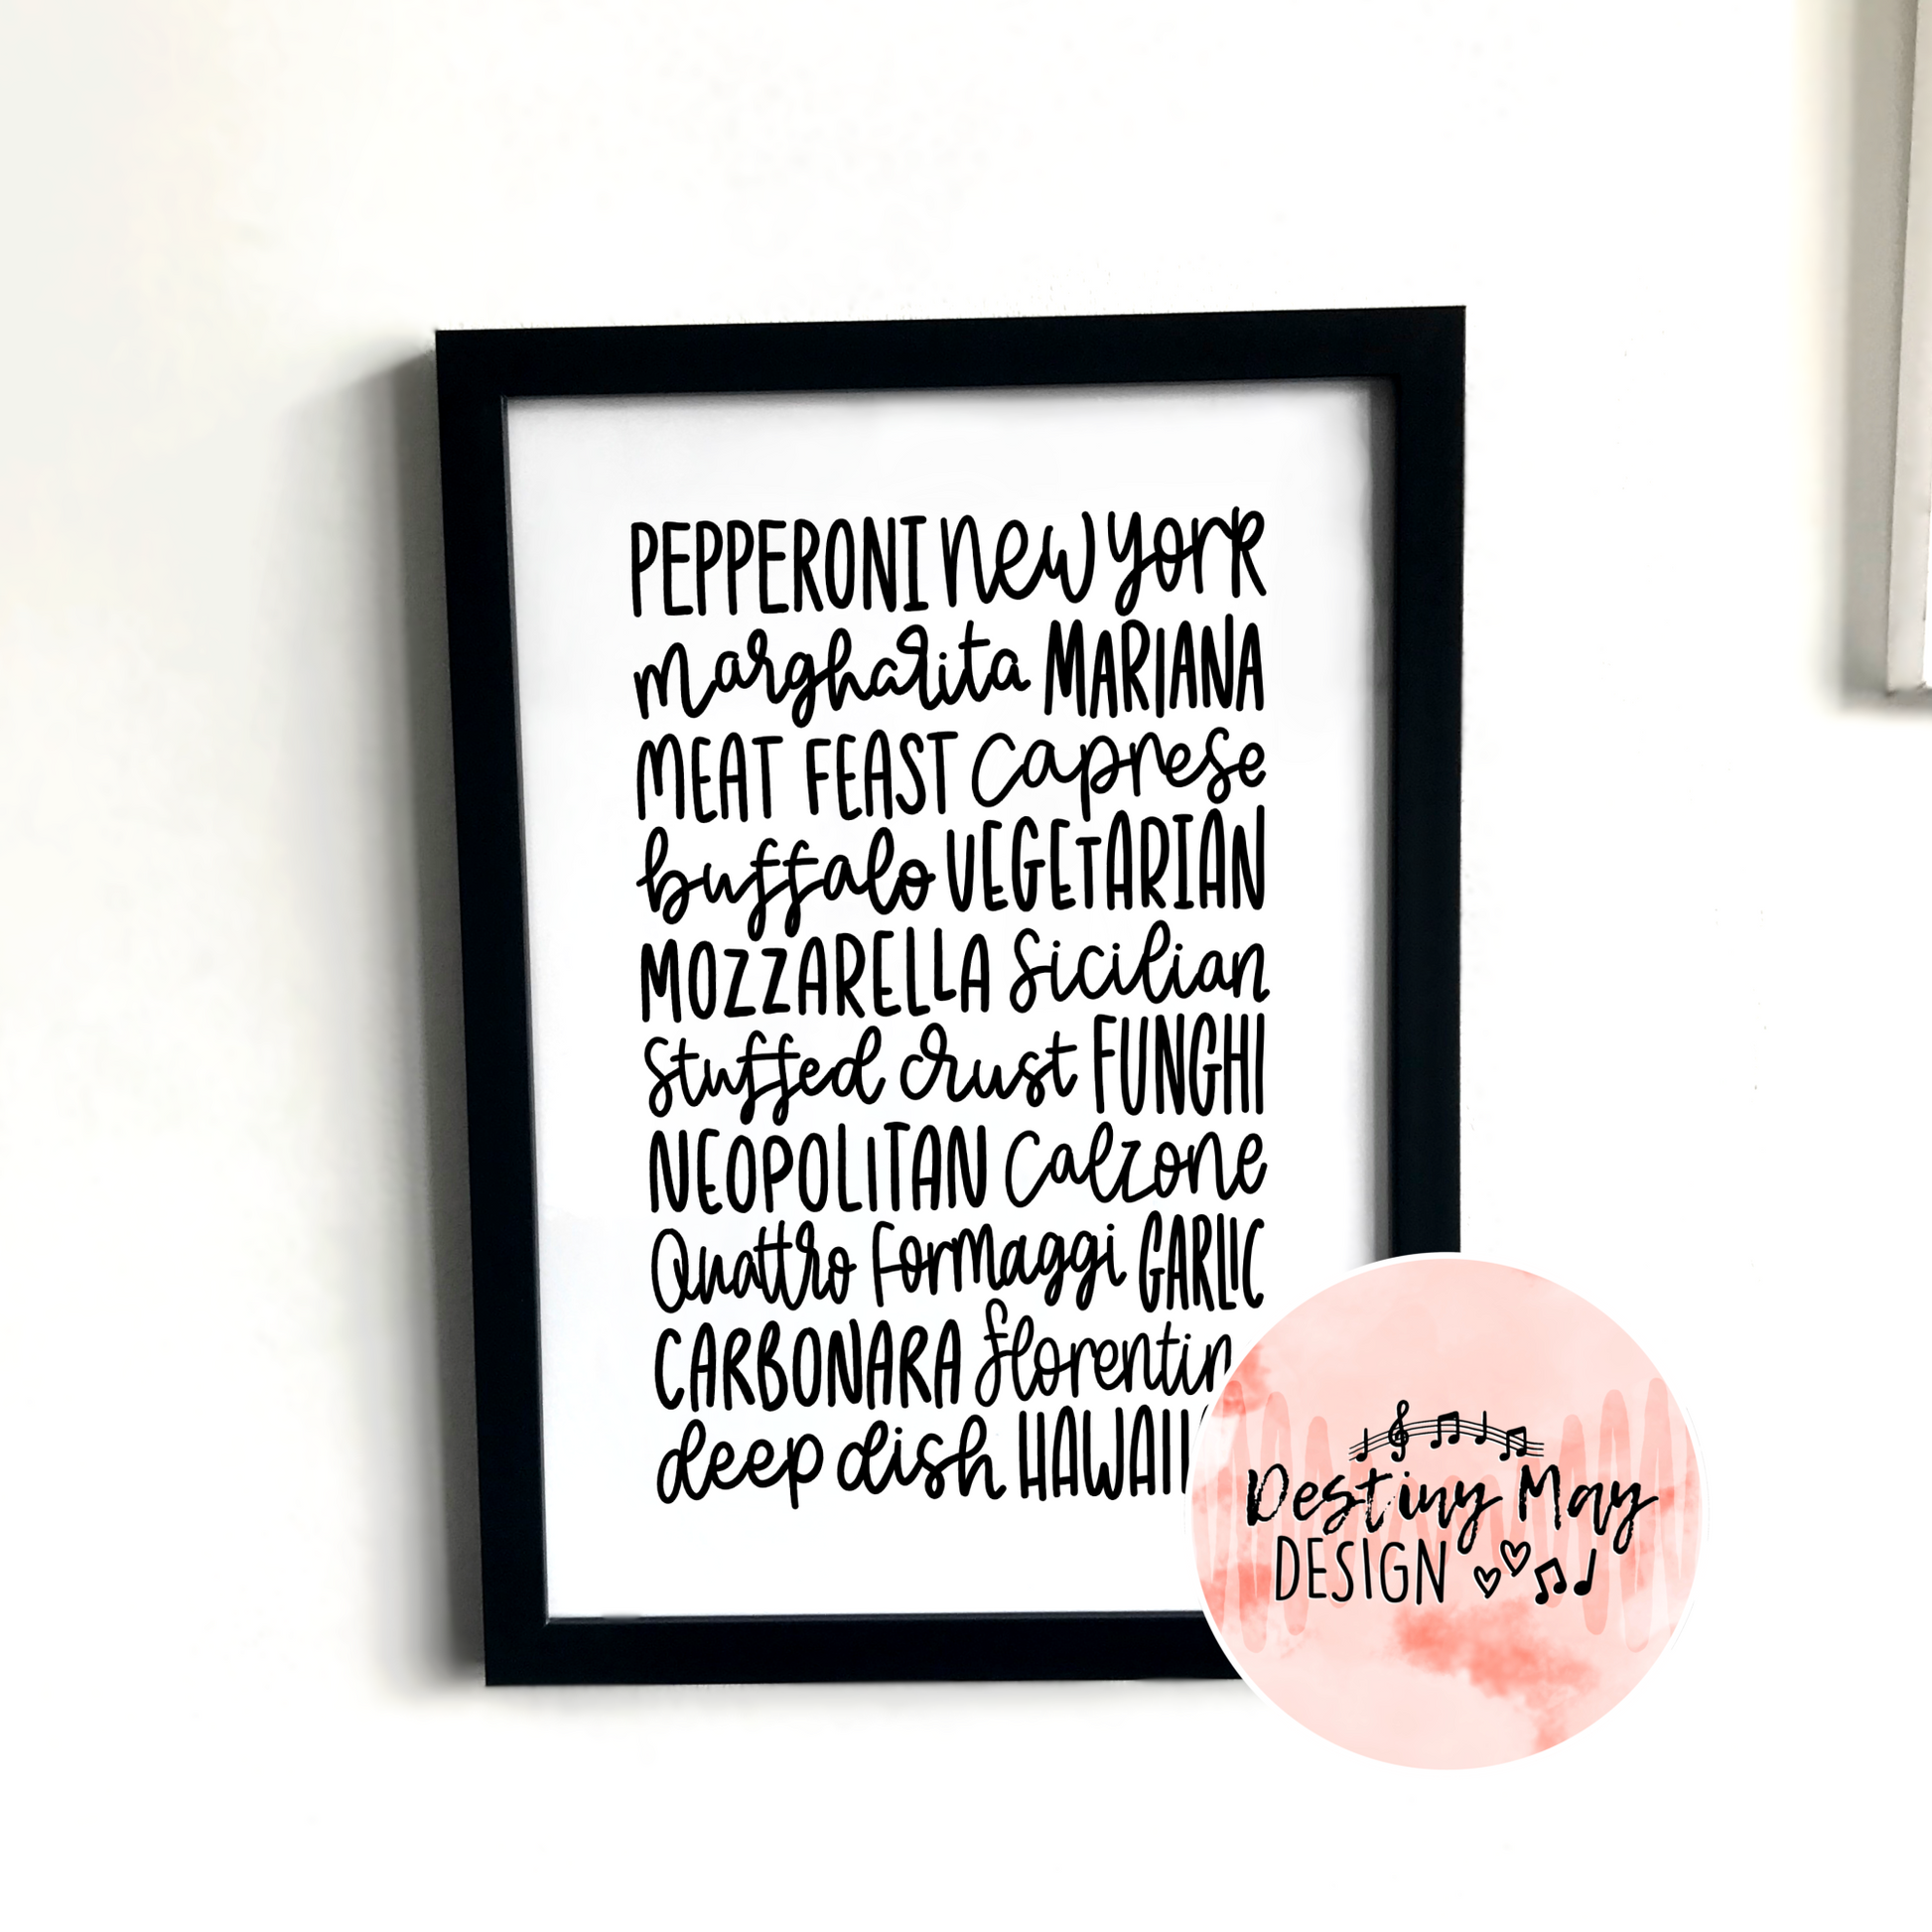 PEPPERONI new york
margharita MARIANA
MEAT FEAST caprese
buffalo VEGETARIAN
MOZZARELLA Sicilian
Stuffed crust FUNGHI
NEOPOLITAN Calzone
Quattro formaggi GARLIC
CARBONARA florentin
deep dish HAWAII
Destiny May
DESIGN